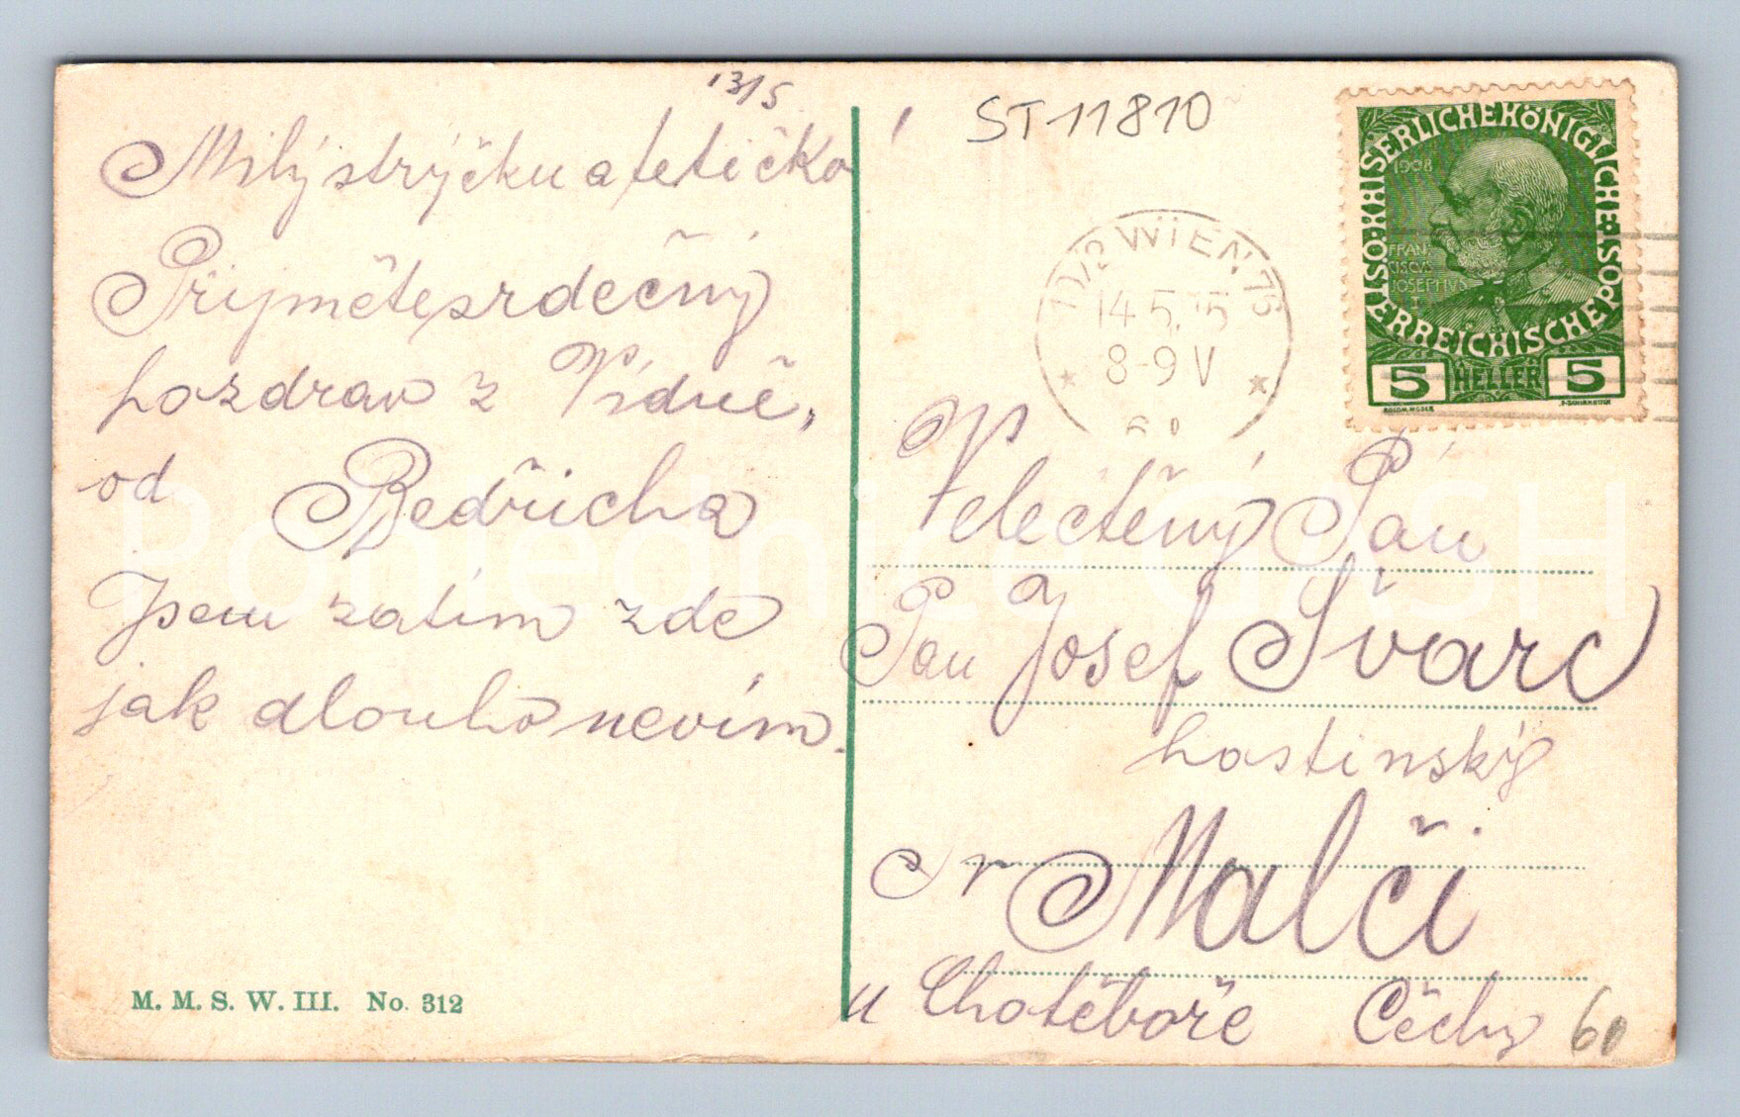 13/5
Milý strýčku a tetičko
Přijměte srdečný
pozdrav z Vídně,
od Bedřicha
Jsem zatím zde
jak dlouho nevím.
M. M. S. W. III. No. 312
ST 11810
KAISERLICHE KÖNIGLICHE ÖSTERREICHISCHE POST
1908
FRAN
CISCVS
JOSEPHVS
I
5 HELLER 5
WIEN 76
14.5.15
8-9 V
Velectěný Pán
Pan Josef Švarc
hostinský
v Malči
u Chotěboře Čechy
60
Pohlednice GASH